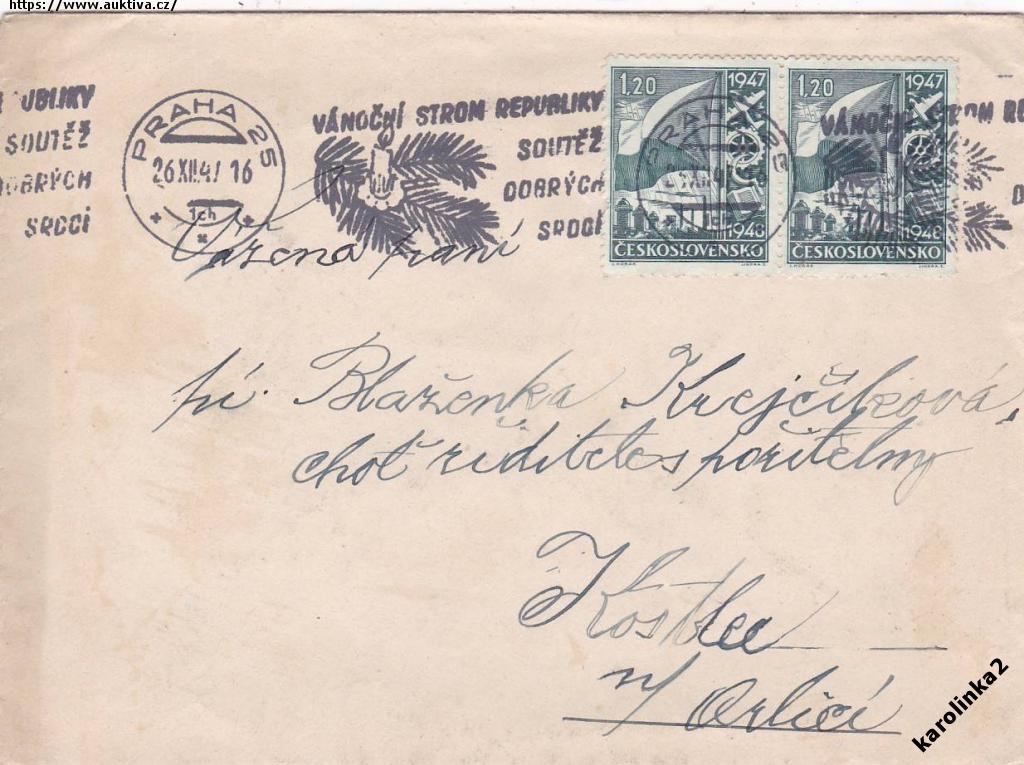 https://www.auktiva.cz/
UBLIKY
SOUTĚŽ
DOBRÝCH
SRDCÍ
PRAHA 25
26.XII.47 16
1ch
VÁNOČNÍ STROM REPUBLIKY
SOUTĚŽ
DOBRÝCH
SRDCÍ
1.20 1947
1948
ČESKOSLOVENSKO
1.20 1947
1948
ČESKOSLOVENSKO
VÁNOČNÍ STROM RE
Vážená paní
pí. Blaženka Krejčíková,
choť ředitele spořitelny
Kostelec
n/ Orlicí
karolinka2